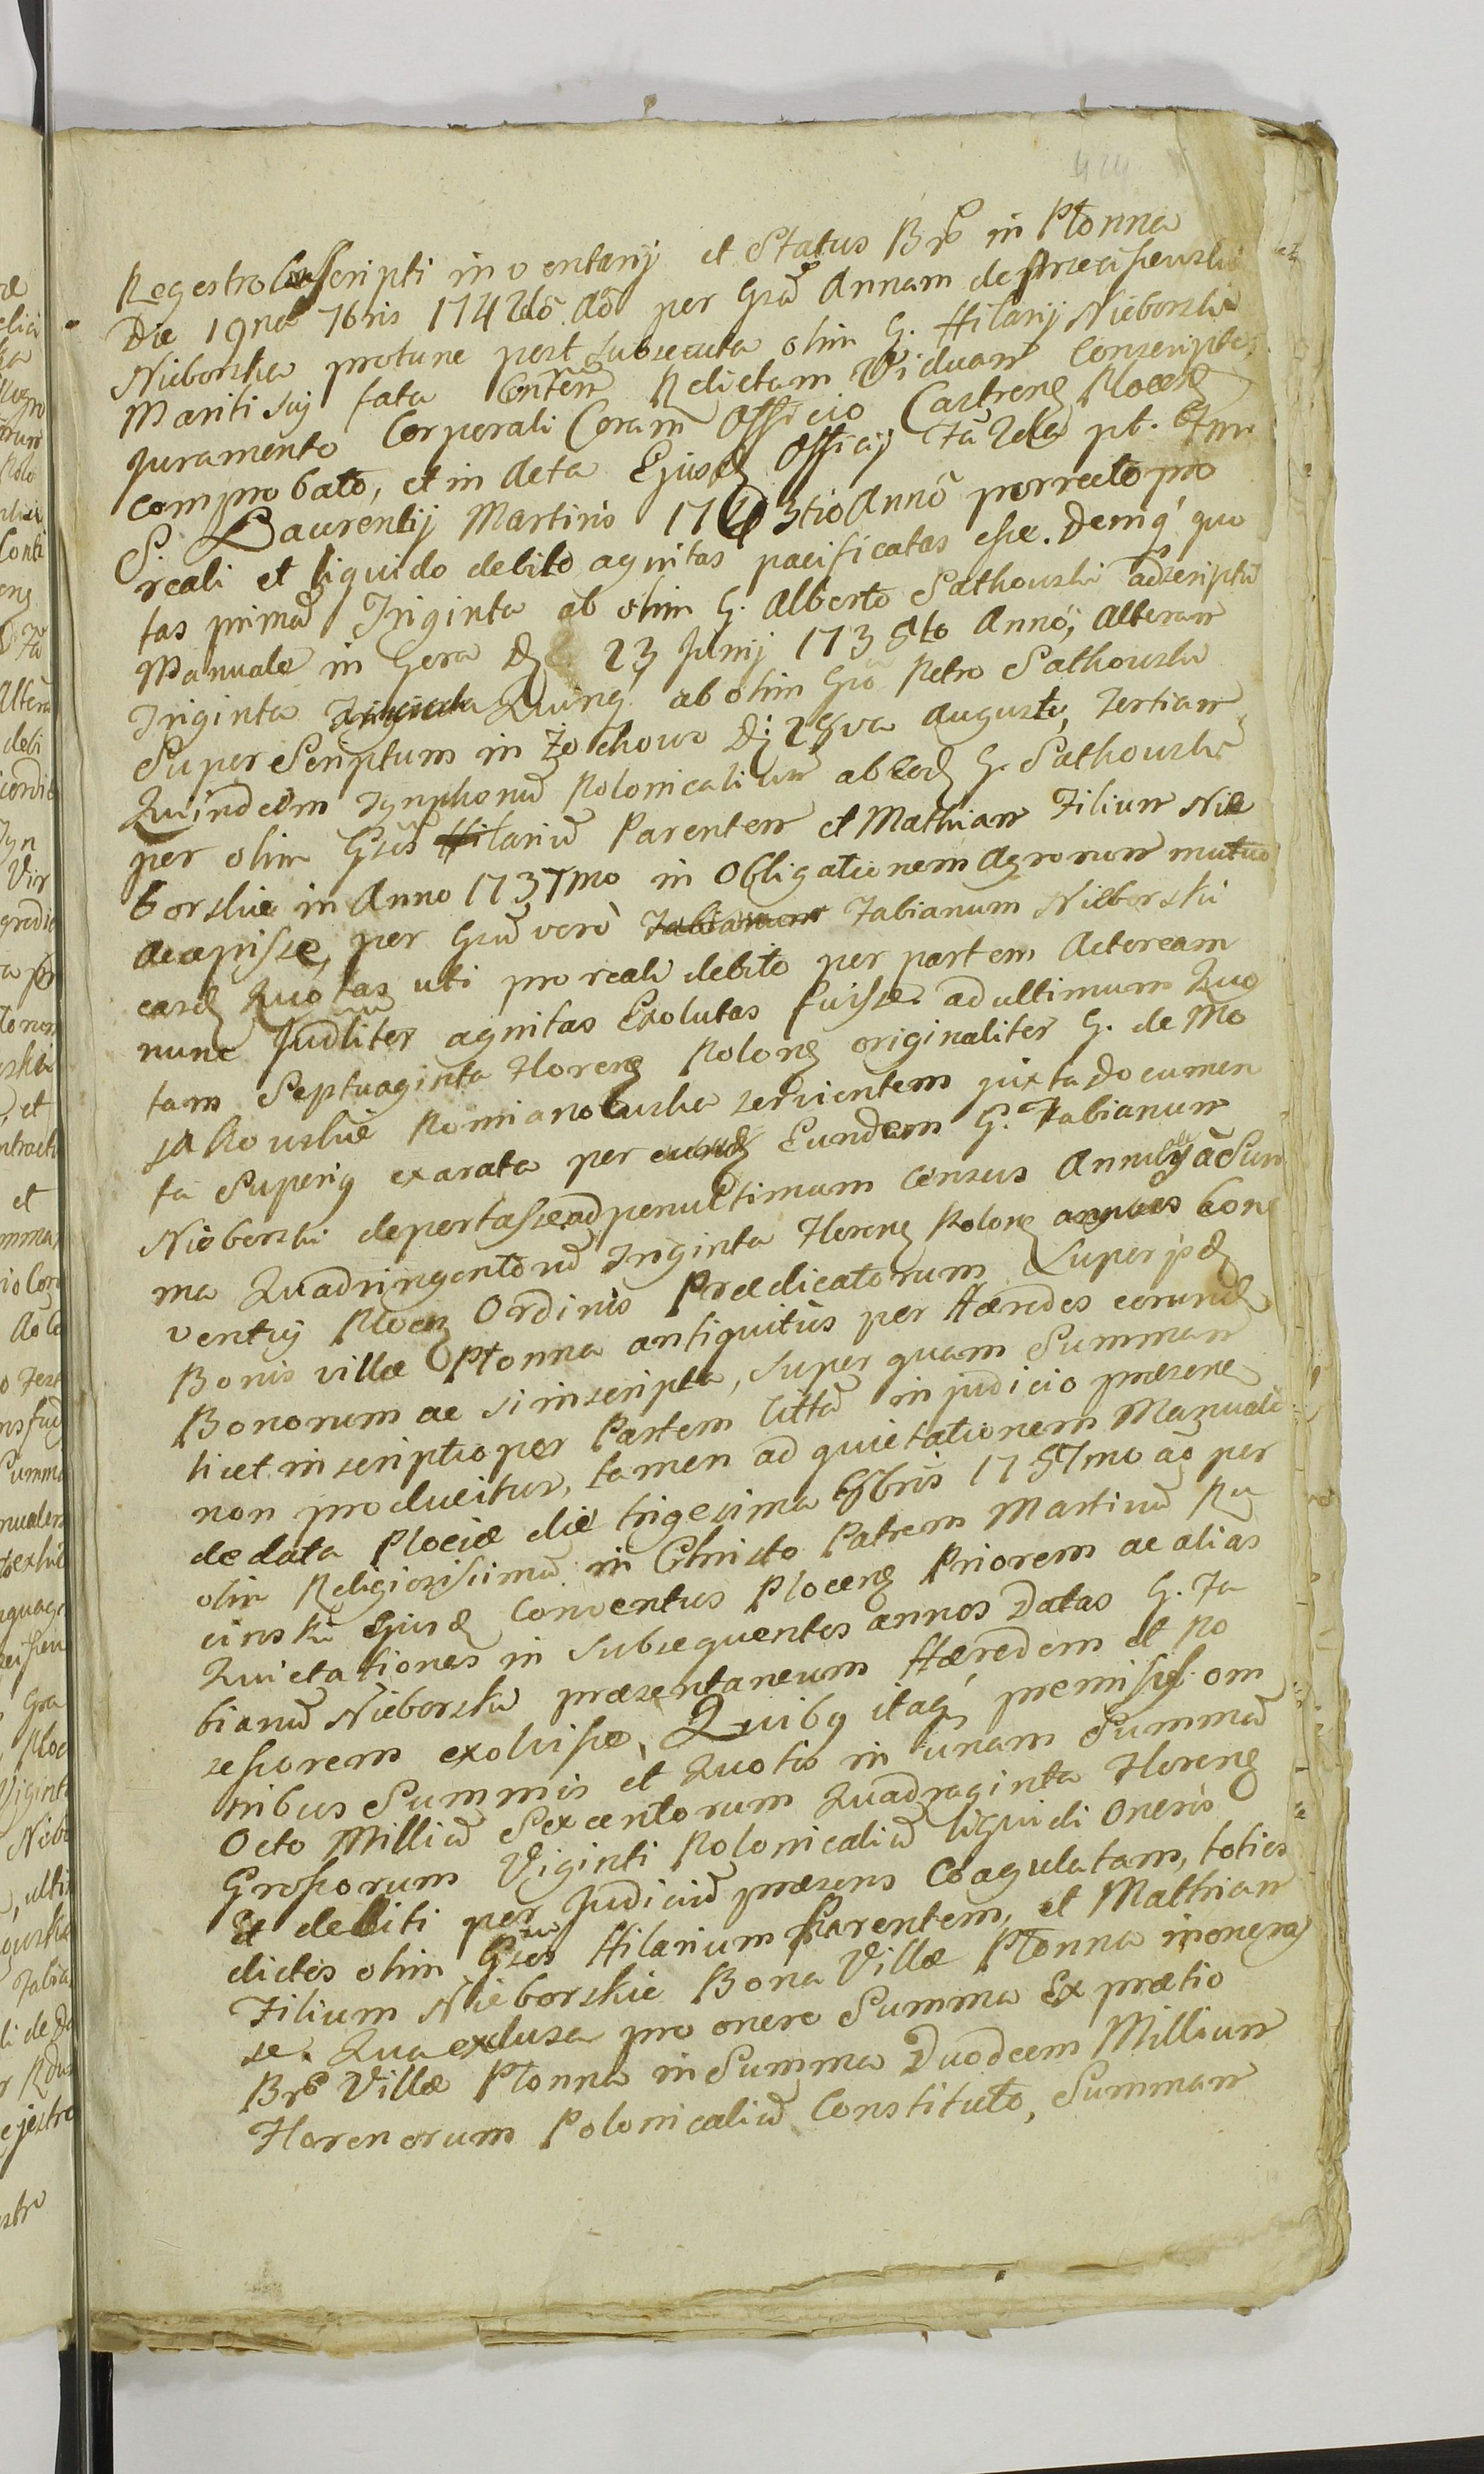 424
Regestro Conscripti inventarij et Status Brõ in Płonna
Die 19na 7bris 1742dõ Aõ per Gsã Annam de Strzeciszewskie
Nieborska protunc post subsecuta olim G. Hilarij Nieborski
Mariti sui fata Relictam Viduam Conscripto
Juramento Corporali Coram Officio Castrenẽ Plocenẽ
comprobato, et in Acta Ejusd Officij Fã 2da pt. Ftum
S. Laurentij Martiris 17 3tio Annõ porrecto pro
reali et liquido debito agnitas pacificatas esse. Demq́ quo
tas primã Triginta ab olim G. Alberto Sathowski adscriptũ
Manuale in Gora D. 23 Junij 1735to Annõ; Alteram
Triginta Quinq́ ab olim Gsõ Petro Sathowski
Super Scriptum in Żochowo D: 28va Augusti, Tertiam
Quindecim Tynphonũ Polonicaliũm ab eod G. Sathowski
per olim Gsos Hilariũ Parentem et Mathiam Filium Nie
borskie in Anno 1737mo in Obligationem Agrorum mutuo
Accepisse, per Gsũ verò Fabianum Nieborski
easd Quotas uti pro reali debito per partem Actoream
nunc Judliter agnitas Exolutas fuisse. ad ultimum Quo
tam Septuaginta Florenẽ Polonẽ originaliter G. de Mo
sakowskie Romianowska servientem juxta documen
ta Superiq exarata per Eundem G. Fabianum
Nieborski deportasse ad penultimum Census Annuales à Sum
ma Quadringentorũ Triginta Florenẽ Polonẽ annuos Con
ventui Plocenẽ Ordinis Prædicatorum Super ijsd
Bonis villæ Płonna antiquitùs per Hæredes eorund
Bonorum ac si inscripta, super quam Summam
licet inscriptio per Partem Cittã in judicio præsene
non producitur, tamen ad quietationem Manuale
de data Plociæ die trigesima 8bris 1757mo aõ per
olim Religiosissimũ in Christo Patrem Martinũ Ru
cinski Ejusd Conventus Plocenẽ Priorem ac alias
Quietationes in subsequentes annos Datas G. Fa
bianũ Nieborski præsentaneum Hæredem et Po
sessorem exolvisse. Quibq itaq́ premissis om
nibus Summis et Quotis in unam Summã
Octo Milliũ Sexcentorum Quadraginta Florenẽ
Grossorum Viginti Polonicaliũ liquidi Oneris
Et debiti per Judiciũ præsens Coagulatam, toties
dictos olim Gsos Hilarium Parentem, et Mathiam
Filium Nieborskie Bona Villæ Płonna inonera
se. Qua exclusa pro onere Summa Ex prætio
Brõ Villæ Płonna in Summa Duodecem Millium
Florenorum Polonicaliũ Constituto, Summam